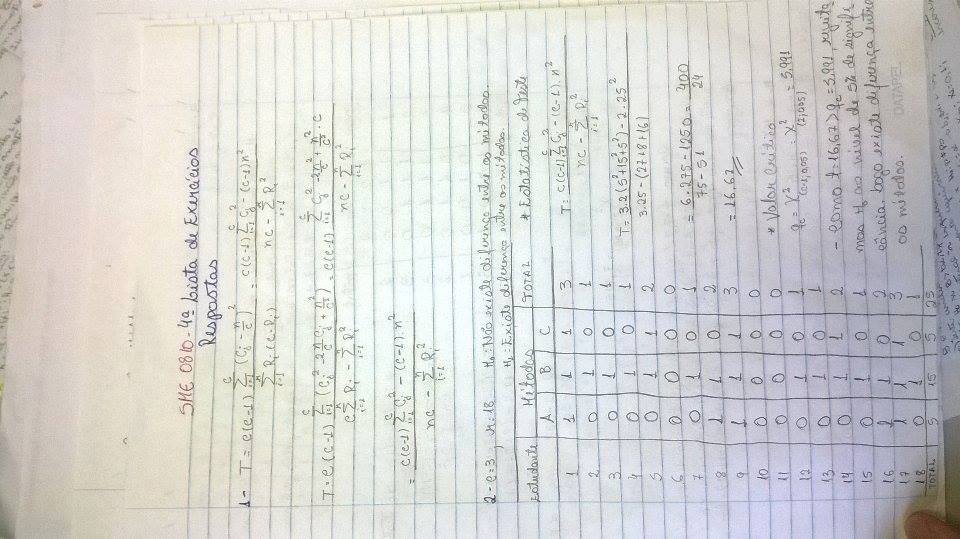 SME 0810 - 4ª Lista de Exercícios
Respostas
1- T = c(c-1) Σ_{j=1}^{c} (C_j - n/c)² / Σ_{i=1}^{n} R_i (c-R_i) = c(c-1) Σ_{j=1}^{c} C_j² - (c-1)n² / nc - Σ_{i=1}^{n} R_i²
T = c(c-1) Σ_{j=1}^{c} (C_j² - 2 n/c C_j + n²/c²) / c Σ_{i=1}^{n} R_i - Σ_{i=1}^{n} R_i² = c(c-1) Σ_{j=1}^{c} C_j² - 2 n²/c + n²/c² . c / nc - Σ_{i=1}^{n} R_i²
= c(c-1) Σ_{j=1}^{c} C_j² - (c-1).n² / nc - Σ_{i=1}^{n} R_i²
2- c=3, r=18 H₀: Não existe diferença entre os métodos.
H₁: Existe diferença entre os métodos.
Estudante Métodos TOTAL
A B C
1 1 1 1 3
2 0 1 0 1
3 0 1 0 1
4 0 1 0 1
5 0 1 1 2
6 0 0 0 0
7 0 1 0 1
8 1 1 0 2
9 1 1 1 3
10 0 0 0 0
11 0 0 0 0
12 0 1 0 1
13 0 1 0 1
14 0 1 1 2
15 0 1 0 1
16 1 1 0 2
17 1 1 1 3
18 0 1 0 1
TOTAL 5 15 5 25
* Estatística de Teste
T = c(c-1) Σ_{j=1}^{c} C_j² - (c-1).n² / nc - Σ_{i=1}^{n} R_i²
T = 3.2(5²+15²+5²) - 2.25² / 3.25 - (27+8+16)
= 6.275 - 1250 / 75 - 51 = 400 / 24
= 16.67
* Valor Crítico
q_c = χ²_(c-1;0,05) = χ²_(2;0,05) = 5.991
- Como t=16,67 > q_c = 5.991, rejeita
mos H₀ ao nível de 5% de signifi
cância. Logo existe diferença entre
os métodos.